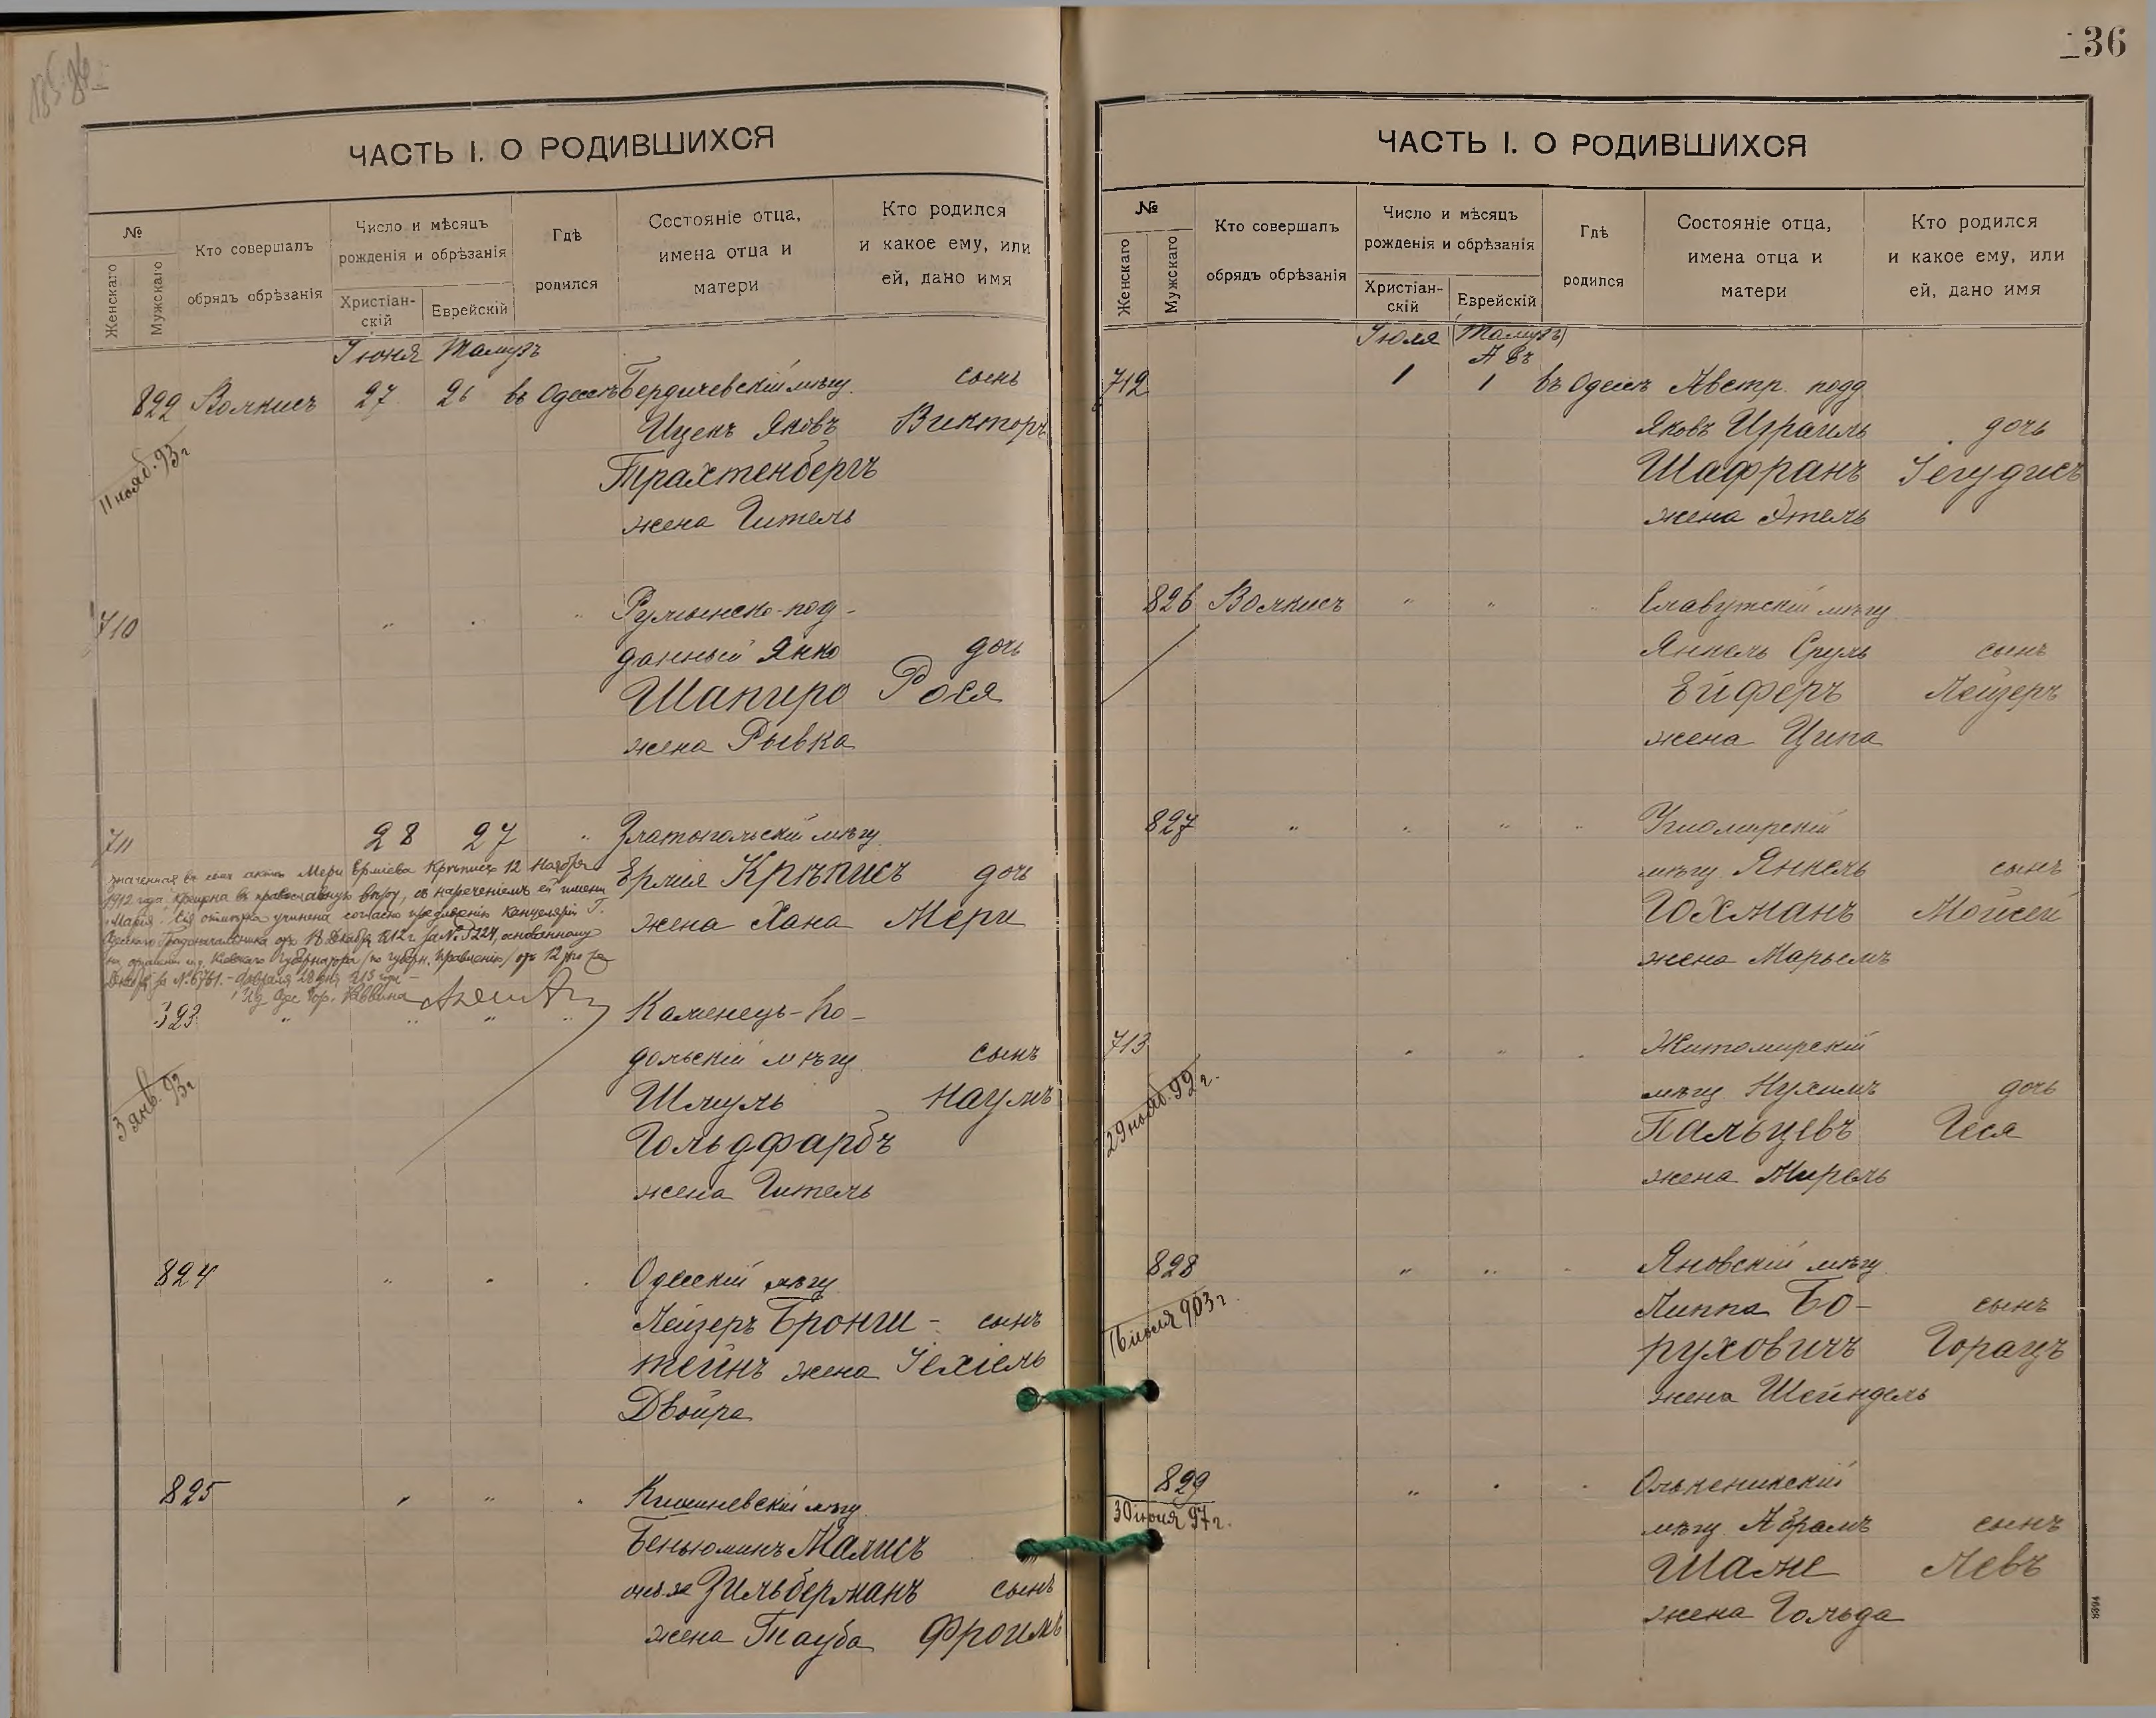 136
ЧАСТЬ I. О РОДИВШИХСЯ
№
Женскаго
Мужскаго
Кто совершалъ
обрядъ обрѣзанія
Число и мѣсяцъ
рожденія и обрѣзанія
Христіан-
скій
Еврейскій
Гдѣ
родился
Состояніе отца,
имена отца и
матери
Кто родился
и какое ему, или
ей, дано имя
Іюня Тамузъ
822 Волкисъ 27 26 въ Одессѣ Бердичевскій мѣщ. сынъ
Ицекъ Яковъ Викторъ
11 нояб. 93 г
Трахтенбергъ
жена Гитель
710 " " " Румынско-под-
данный Янко дочь
Шапиро Рося
жена Рывка
711 28 27 " Златопольскій мѣщ.
Ермія Крѣписъ дочь
жена Хана Мери
значенная въ семъ актѣ Мери Ерміева Крѣписъ 12 Ноября
1912 года крещена въ православную вѣру, съ нареченіемъ ей имени
"Марія". Сія отмѣтка учинена согласно предложенію Канцеляріи Г.
Одесскаго Градоначальника отъ 18 Декабря 1912 г. за № 5224, основанному
Кіевскаго Губернатора /по губерн. правленію/ отъ 12 того же
Декабря за № 6761. - Февраля 28 дня 1913 года
И д Одес Гор. Раввина
823 " " " " Каменецъ-По-
дольскій мѣщ. сынъ
3 янв. 93 г
Шмуль Наумъ
Гольдфарбъ
жена Гитель
824 " " " Одесскій мѣщ.
Лейзеръ Бронш- сынъ
тейнъ жена Іехіель
Двойра
825 " " " Кишиневскій мѣщ.
Беньюминъ Малисъ
онъ же Зильберманъ сынъ
жена Тауба Фроимъ
ЧАСТЬ I. О РОДИВШИХСЯ
№
Женскаго
Мужскаго
Кто совершалъ
обрядъ обрѣзанія
Число и мѣсяцъ
рожденія и обрѣзанія
Христіан-
скій
Еврейскій
Гдѣ
родился
Состояніе отца,
имена отца и
матери
Кто родился
и какое ему, или
ей, дано имя
Іюля (Тамузъ)
Авъ
712 1 1 въ Одессѣ Австр. подд
Яковъ Израиль дочь
Шафранъ Іегудисъ
жена Этель
826 Волкисъ " " " Славутскій мѣщ.
Янкель Сруль сынъ
Ейферъ Лейзеръ
жена Ципа
827 " " " " Житомирскій
мѣщ. Янкель сынъ
Юхманъ Мойсей
жена Марьемъ
713 " " " Житомирскій
мѣщ. Нухимъ дочь
29 нояб. 92 г.
Пальцевъ Геся
жена Мирель
828 " " " Яновскій мѣщ.
Липпа Бо- сынъ
16 іюля 903 г.
руховичъ Горацъ
жена Шейндель
829 " " " Олькеникскій
30 іюня 97 г.
мѣщ. Абрамъ сынъ
Шаже Левъ
жена Гольда
8394